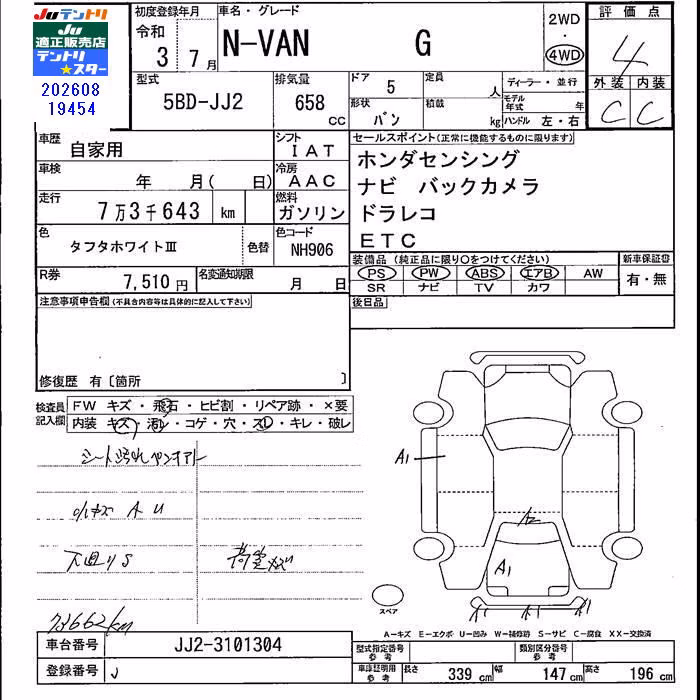 Juテントリ
Ju
適正販売店
テントリ
スター
202608
19454
初度登録年月
令和
3 7月
車名・グレード
N-VAN G
2WD
・
4WD
評価点
4
外装 内装
C C
型式
5BD-JJ2
排気量
658
CC
ドア 5
形状 バン
定員 人
積載 kg
ディーラー・並行
モデル年式 年
ハンドル 左・右
車歴
自家用
シフト
IAT
車検
年 月( 日)
冷房
AAC
走行
7万3千643 km
燃料
ガソリン
色
タフタホワイトⅢ
色替
色コード
NH906
R券
7,510円
名変通知期限
月 日
セールスポイント(正常に機能するものに限ります)
ホンダセンシング
ナビ バックカメラ
ドラレコ
ETC
装備品(純正品に限り○をつけてください)
新車保証書
PS PW ABS エアB AW
有・無
SR ナビ TV カワ
後日品
注意事項申告欄(不具合内容等は具体的に記入して下さい)
修復歴 有〔箇所 〕
検査員記入欄
FW キズ・飛石・ヒビ割・リペア跡・×要
内装 キズ・汚レ・コゲ・穴・スレ・キレ・破レ
小キズ A U
下廻りS
荷室キズ
73662km
A1
A1
A1
A1
スペア
A-キズ E-エクボ U-凹み W-補修跡 S-サビ C-腐食 XX-交換済
車台番号
JJ2-3101304
登録番号
型式指定番号
参考
類別区分番号
参考
車庫証明用
参考
長さ 339 cm 幅 147 cm 高さ 196 cm